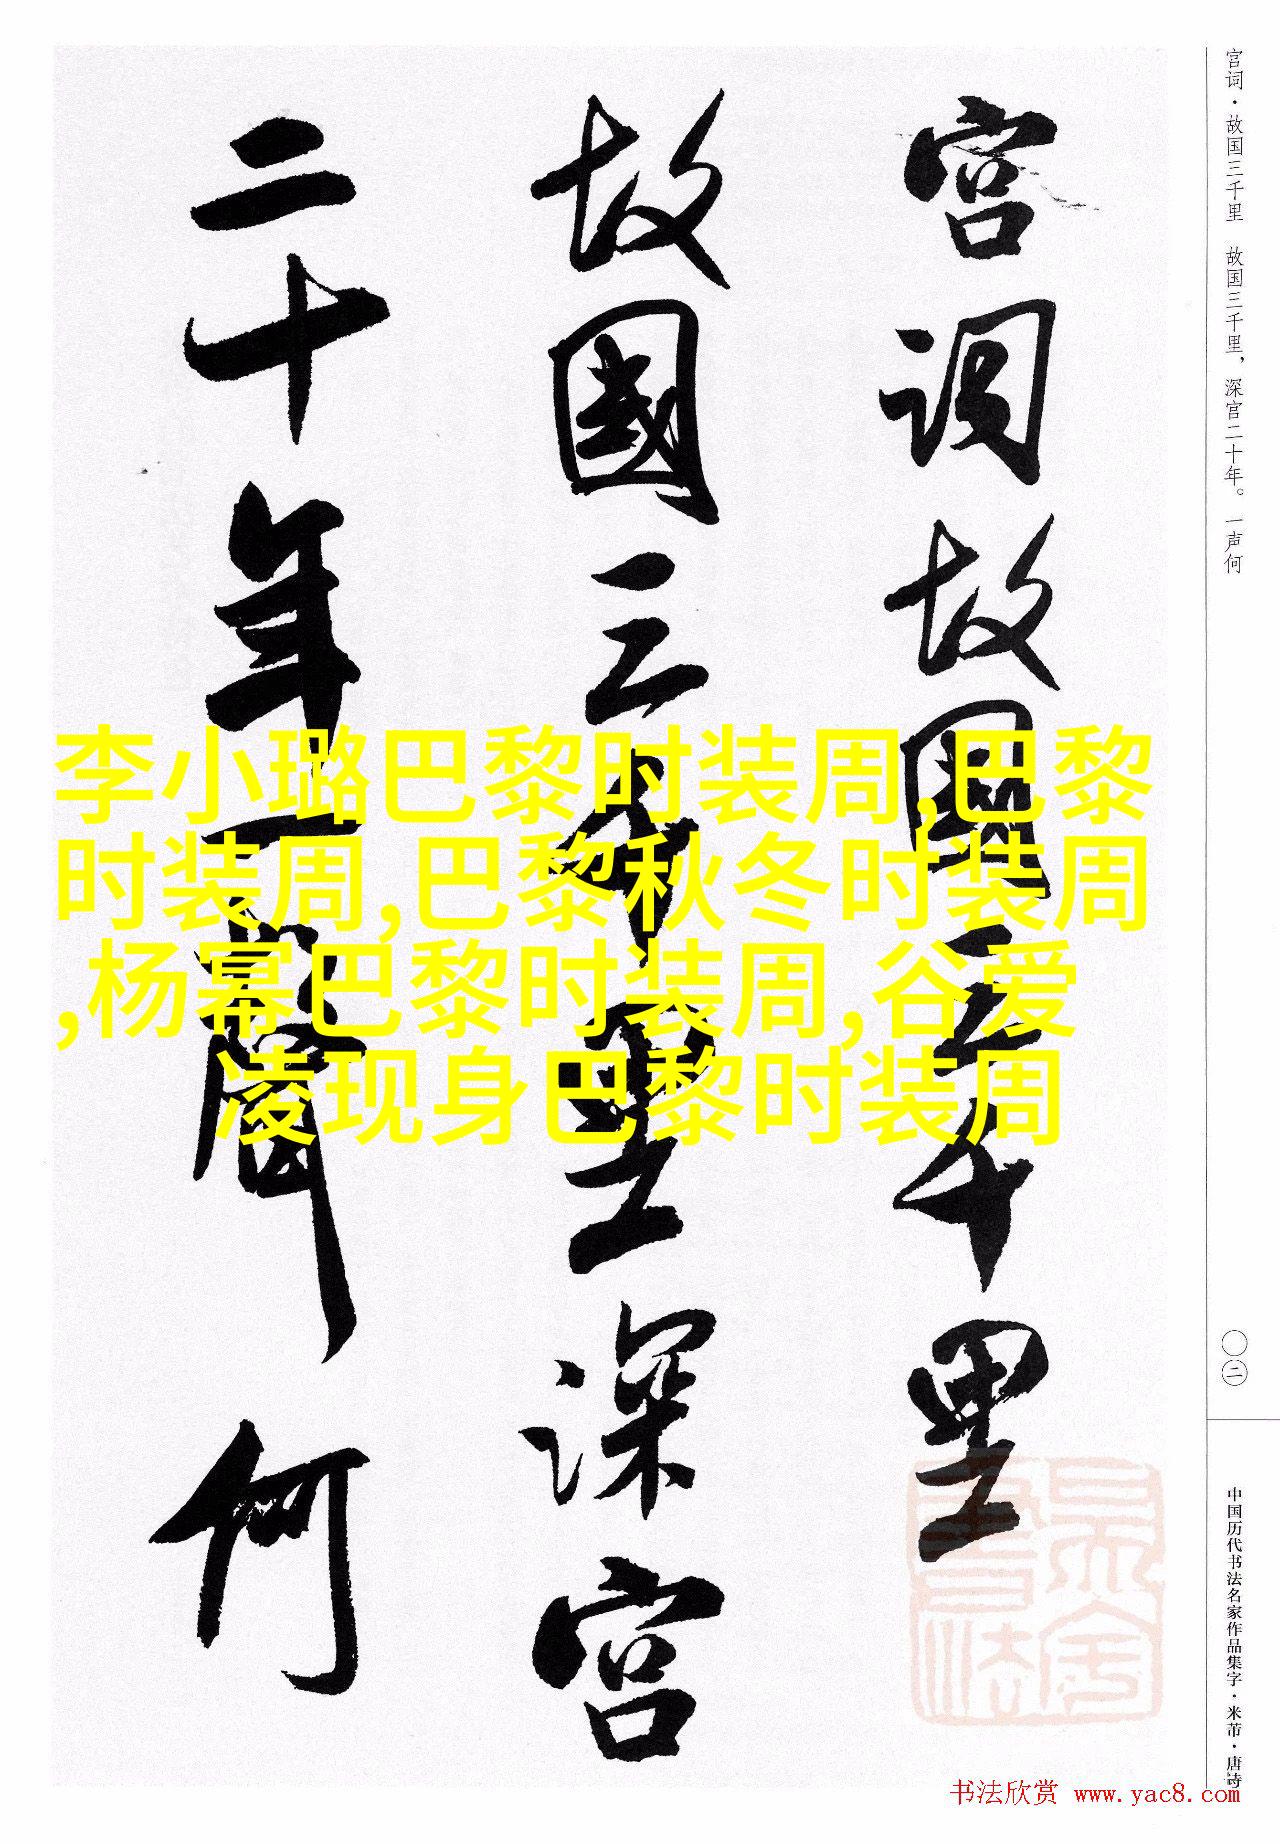 宫词·故国三千里　故国三千里，深宫二十年。一声何
宫词故国三千里
故國三千里深宫
二十年一聲何
李小璐巴黎时装周,巴黎
时装周,巴黎秋冬时装周
,杨幂巴黎时装周,谷爱
凌现身巴黎时装周
〇二
中国历代书法名家作品集字·米芾·唐诗
书法欣赏 www.yac8.com